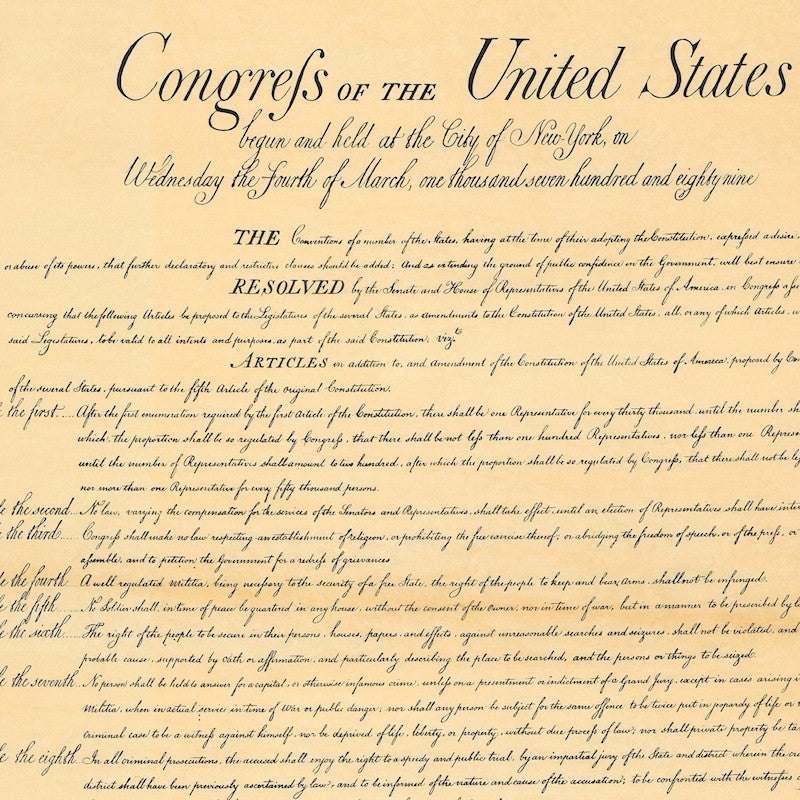 Congreſs OF THE United States
begun and held at the City of New-York, on
Wednesday the Fourth of March, one thousand seven hundred and eighty nine
THE Conventions of a number of the States, having at the time of their adopting the Constitution, expressed a desire,
or abuse of its powers, that further declaratory and restrictive clauses should be added: And as extending the ground of public confidence in the Government, will best ensure
RESOLVED by the Senate and House of Representatives of the United States of America, in Congress
concurring that the following Articles be proposed to the Legislatures of the several States, as amendments to the Constitution of the United States, all, or any of which Articles,
said Legislatures, to be valid to all intents and purposes, as part of the said Constitution, vizt.
ARTICLES in addition to, and amendment of the Constitution of the United States of America, proposed by
of the several States, pursuant to the fifth Article of the original Constitution.
the first.... After the first enumeration required by the first Article of the Constitution, there shall be one Representative for every thirty thousand, until the number
which, the proportion shall be so regulated by Congreſs, that there shall be not leſs than one hundred Representatives, nor leſs than one
until the number of Representatives shall amount to two hundred, after which the proportion shall be so regulated by Congreſs, that there shall not be
nor more than one Representative for every fifty thousand persons.
the second... No law, varying the compensation for the services of the Senators and Representatives, shall take effect, until an election of Representatives shall have
the third..... Congreſs shall make no law respecting an establishment of religion, or prohibiting the free exercise thereof; or abridging the freedom of speech, or of the preſs, or
aſsemble, and to petition the Government for a redreſs of grievances
the fourth.... A well regulated Militia, being neceſsary to the security of a free State, the right of the people to keep and bear Arms, shall not be infringed.
the fifth..... No Soldier shall, in time of peace be quartered in any house, without the consent of the owner, nor in time of war, but in a manner to be prescribed by
the sixth.... The right of the people to be secure in their persons, houses, papers, and effects, against unreasonable searches and seizures, shall not be violated, and
probable cause, supported by oath or affirmation, and particularly describing the place to be searched, and the persons or things to be seized.
the seventh.. No person shall be held to answer for a capital, or otherwise infamous crime, unleſs on a presentment or indictment of a Grand Jury, except in cases arising
Militia, when in actual service in time of War or public danger; nor shall any person be subject for the same offence to be twice put in jeopardy of life or
criminal case to be a witneſs against himself, nor be deprived of life, liberty, or property, without due proceſs of law; nor shall private property be
the eighth.. In all criminal prosecutions, the accused shall enjoy the right to a speedy and public trial, by an impartial jury of the State and district wherein the
district shall have been previously ascertained by law, and to be informed of the nature and cause of the accusation; to be confronted with the witneſses